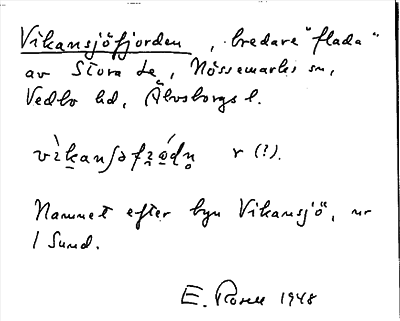 Vikansjöfjorden, bredare "flada"
av Stora Le, Nössemarks sn,
Vedbo hd, Älvsborgs l.
v (?).
Namnet efter byn Vikansjö, nr
1 Sund.
E. Rosell 1948